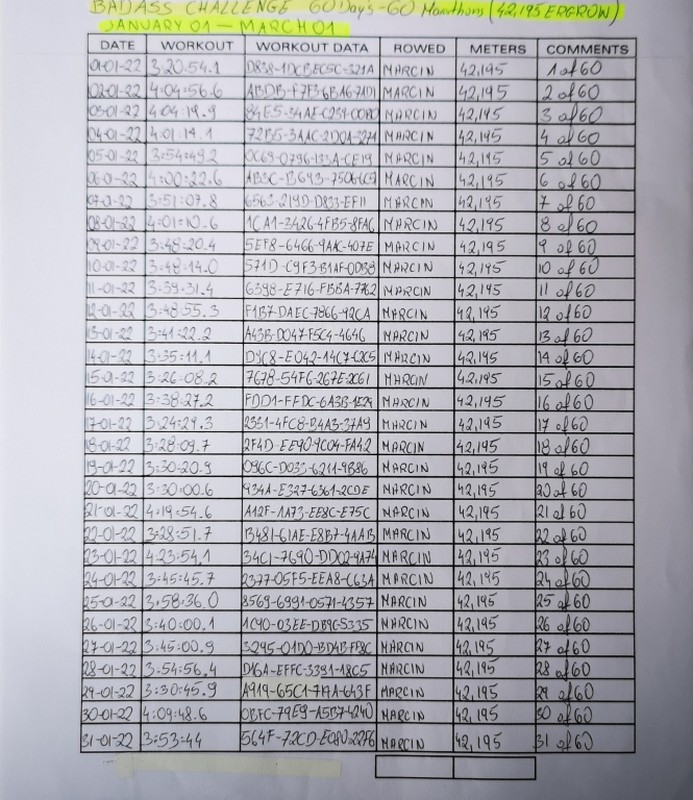 BADASS CHALLENGE 60 Day's - 60 Marathons (42,195 ERGROW)
JANUARY 01 — MARCH 01
DATE WORKOUT WORKOUT DATA ROWED METERS COMMENTS
01-01-22 3:20:54.1 MARCIN 42,195 1 of 60
02-01-22 4:04:56.6 MARCIN 42,195 2 of 60
03-01-22 4:04:19.9 MARCIN 42,195 3 of 60
04-01-22 4:01:14.1 MARCIN 42,195 4 of 60
05-01-22 3:54:49.2 MARCIN 42,195 5 of 60
06-01-22 4:00:22.6 MARCIN 42,195 6 of 60
07-01-22 3:51:07.8 6563-219D-D833-EF11 MARCIN 42,195 7 of 60
08-01-22 4:01:10.6 1CA1-3426-4FB5-8FAC MARCIN 42,195 8 of 60
09-01-22 3:48:20.4 5EF8-6466-9AAC-407E MARCIN 42,195 9 of 60
10-01-22 3:48:14.0 571D-C9F3-B1AF-0D38 MARCIN 42,195 10 of 60
11-01-22 3:39:31.4 6398-E716-FBBA-7762 MARCIN 42,195 11 of 60
12-01-22 3:48:55.3 F1B7-DAEC-7866-92CA MARCIN 42,195 12 of 60
13-01-22 3:41:22.2 A43B-D047-F5C4-4646 MARCIN 42,195 13 of 60
14-01-22 3:35:11.1 MARCIN 42,195 14 of 60
15-01-22 3:26:08.2 7678-54F6-267E-2C61 MARCIN 42,195 15 of 60
16-01-22 3:38:27.2 MARCIN 42,195 16 of 60
17-01-22 3:24:29.3 2331-4FC8-B4A3-37A9 MARCIN 42,195 17 of 60
18-01-22 3:28:09.7 2F4D-EE90-9C04-FA42 MARCIN 42,195 18 of 60
19-01-22 3:30:20.9 096C-D033-6211-9B86 MARCIN 42,195 19 of 60
20-01-22 3:30:00.6 934A-E327-6361-2CDE MARCIN 42,195 20 of 60
21-01-22 4:19:54.6 A12F-1A73-EE8C-E75C MARCIN 42,195 21 of 60
22-01-22 3:28:51.7 B481-61AE-E8B7-4AAB MARCIN 42,195 22 of 60
23-01-22 4:23:54.1 34C1-7690-DD02-9A74 MARCIN 42,195 23 of 60
24-01-22 3:45:45.7 2377-05F5-EEA8-C63A MARCIN 42,195 24 of 60
25-01-22 3:58:36.0 8569-6991-0571-4357 MARCIN 42,195 25 of 60
26-01-22 3:40:00.1 1C90-03EE-DB9C-5335 MARCIN 42,195 26 of 60
27-01-22 3:45:00.9 MARCIN 42,195 27 of 60
28-01-22 3:54:56.4 D16A-EFFC-3391-18C5 MARCIN 42,195 28 of 60
29-01-22 3:30:45.9 MARCIN 42,195 29 of 60
30-01-22 4:09:48.6 0BFC-79E9-A5B7-4240 MARCIN 42,195 30 of 60
31-01-22 3:53:44 564F-72CD-E080-22F6 MARCIN 42,195 31 of 60